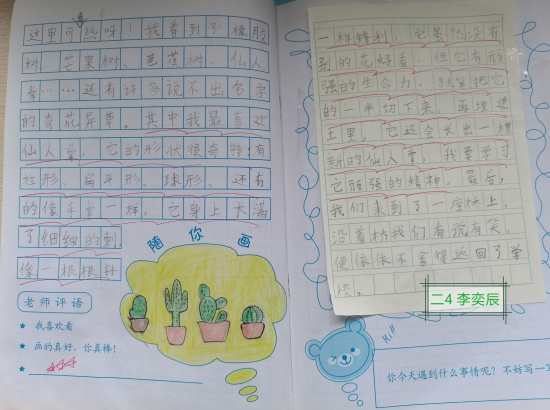 真
这里可热呀！我看到了橡胶
树、芒果树、芭蕉树、仙人
掌……还有许多说不出名字
的奇花异草。其中我最喜欢
仙人掌，它的形状很奇特：有
柱形、扁平形、球形、还有
的像手掌一样，它身上长满
了细细的刺，
像一根根针
随你画
老师评语
★ 我喜欢看
★ 画的真好，你真棒！
★
一样锋利，它虽然没有
别的花好看，但它有顽
强的生命力，就算把它
的一半切下来，再埋进
土里，它还会长出一棵
新的仙人掌，我要学习
它顽强的精神。最后，
我们来到了一座桥上，
沿着桥我们有说有笑，
便依依不舍得返回了学
校。
二4 李奕辰
Hi!
你今天遇到什么事情呢？不妨写一写